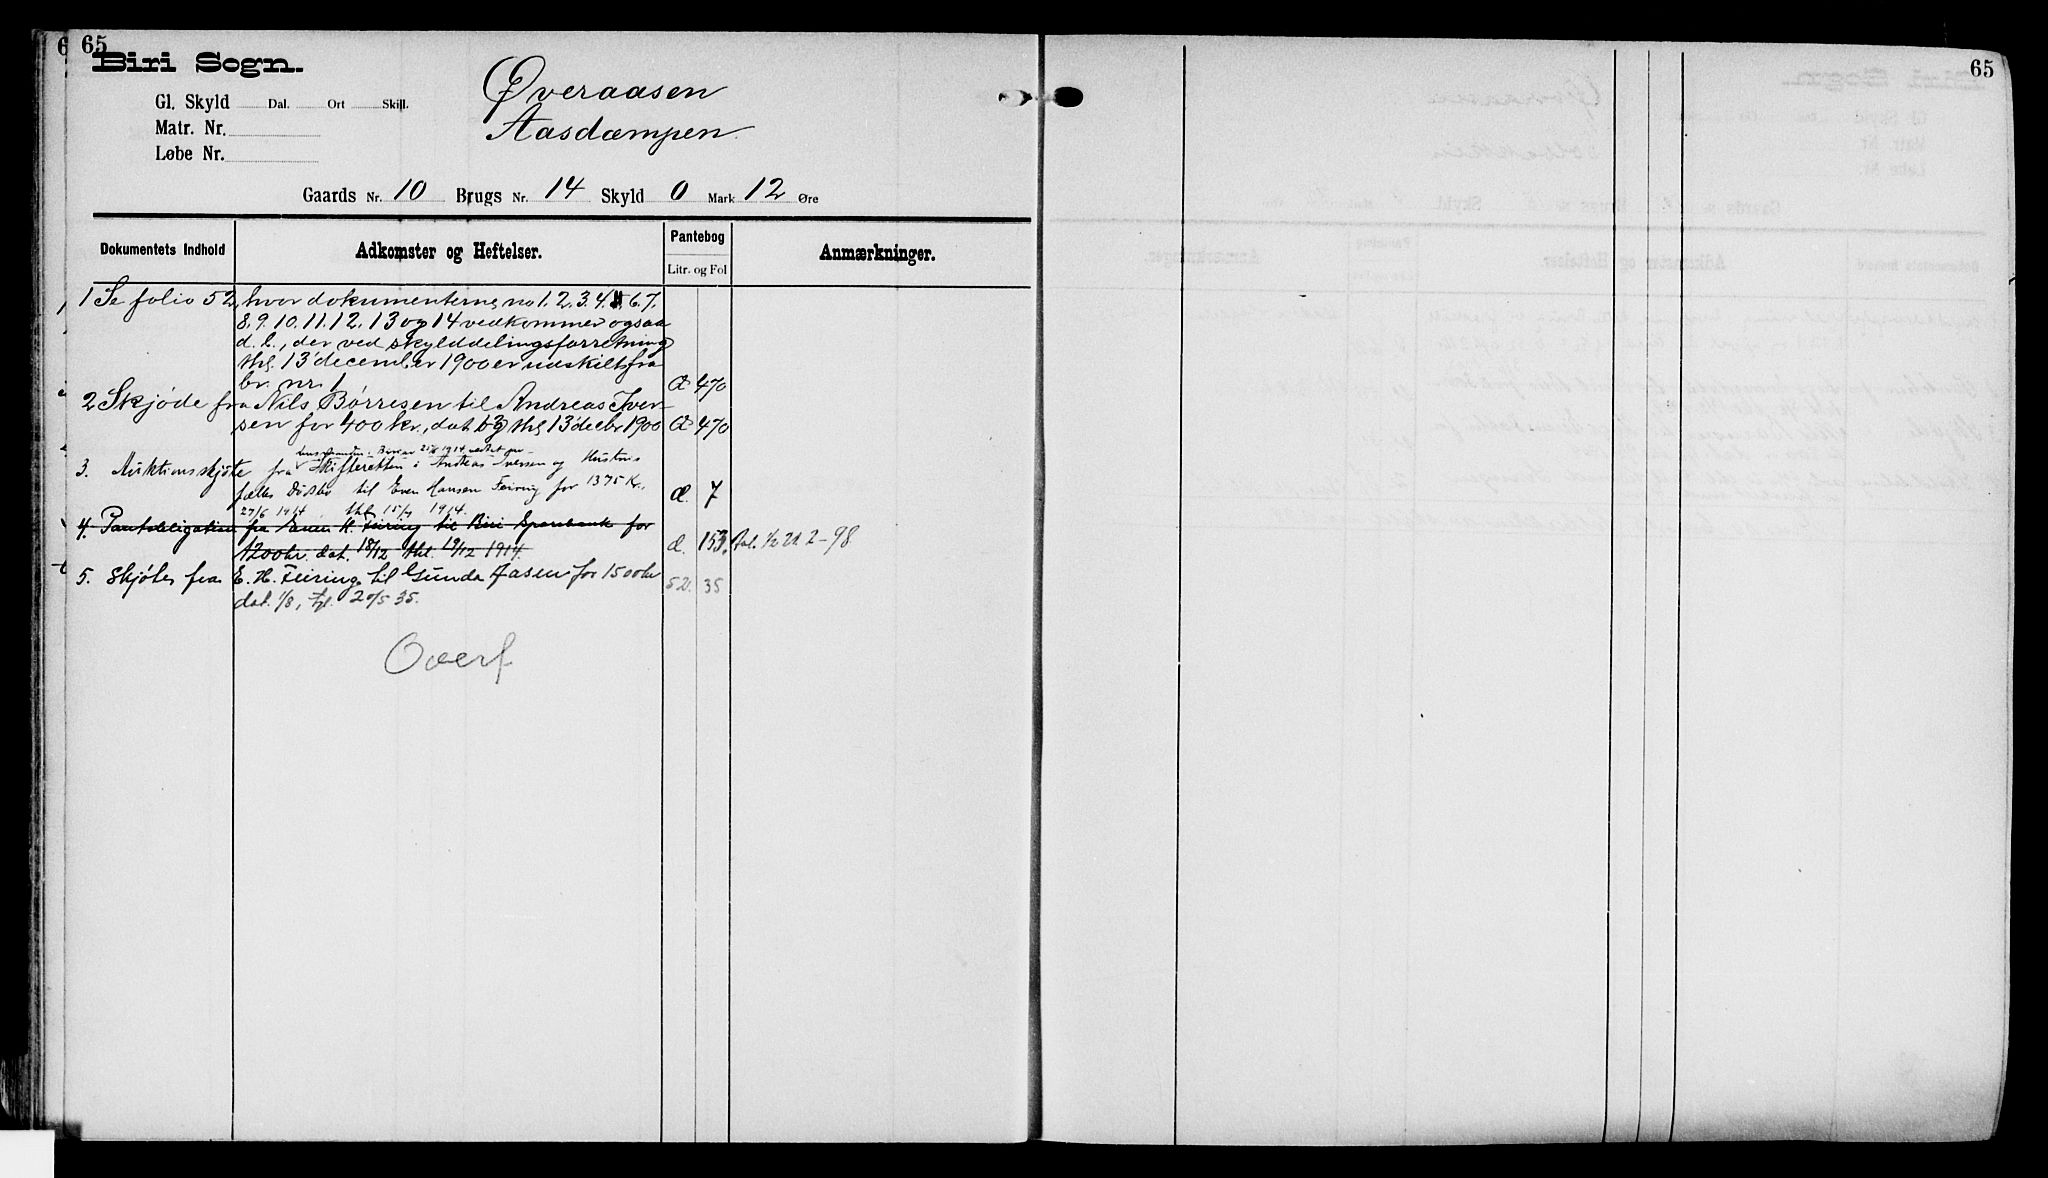 65
Biri Sogn.
Øveraasen
Gl. Skyld Dal. Ort Skill.
Aasdæmpen
Matr. Nr.
Løbe Nr.
Gaards Nr. 10 Brugs Nr. 14 Skyld 0 Mark 12 Øre
Dokumentets Indhold Adkomster og Heftelser. Pantebog Anmærkninger.
Litr. og Fol
1 Se folio 52, hvor dokumenterne no 1. 2. 3. 4. 6. 7.
8. 9. 10. 11. 12. 13 og 14 vedkommer ogsaa
d. b., der ved skylddelingsforretning
thl. 13' december 1900 er udskilt fra
br. nr. 1 Æ 470
2 Skjøde fra Nils Børresen til Andreas Iver-
sen for 400 kr., dat. og thl. 13' decbr 1900 Æ 470
3. Auktionsskjøte fra Skifteretten i Andreas Iversen og Hustrus
fælles Dødsbo til Even Hansen Feiring for 1375 Kr. æ. 7
27/6 1914 thl. 15/7 1914.
4. Pantobligation fra Even H. Feiring til Biri Sparebank for
1200 kr. dat. 18/12 thl. 19/12 1914. æ. 153. Aul. 1/2 21. 2-98
5. Skjøte fra E. H. Feiring til Gunda Aasen for 1500 kr
dat. 1/8, tgl. 20/5 35. 52. 35
Overf
65